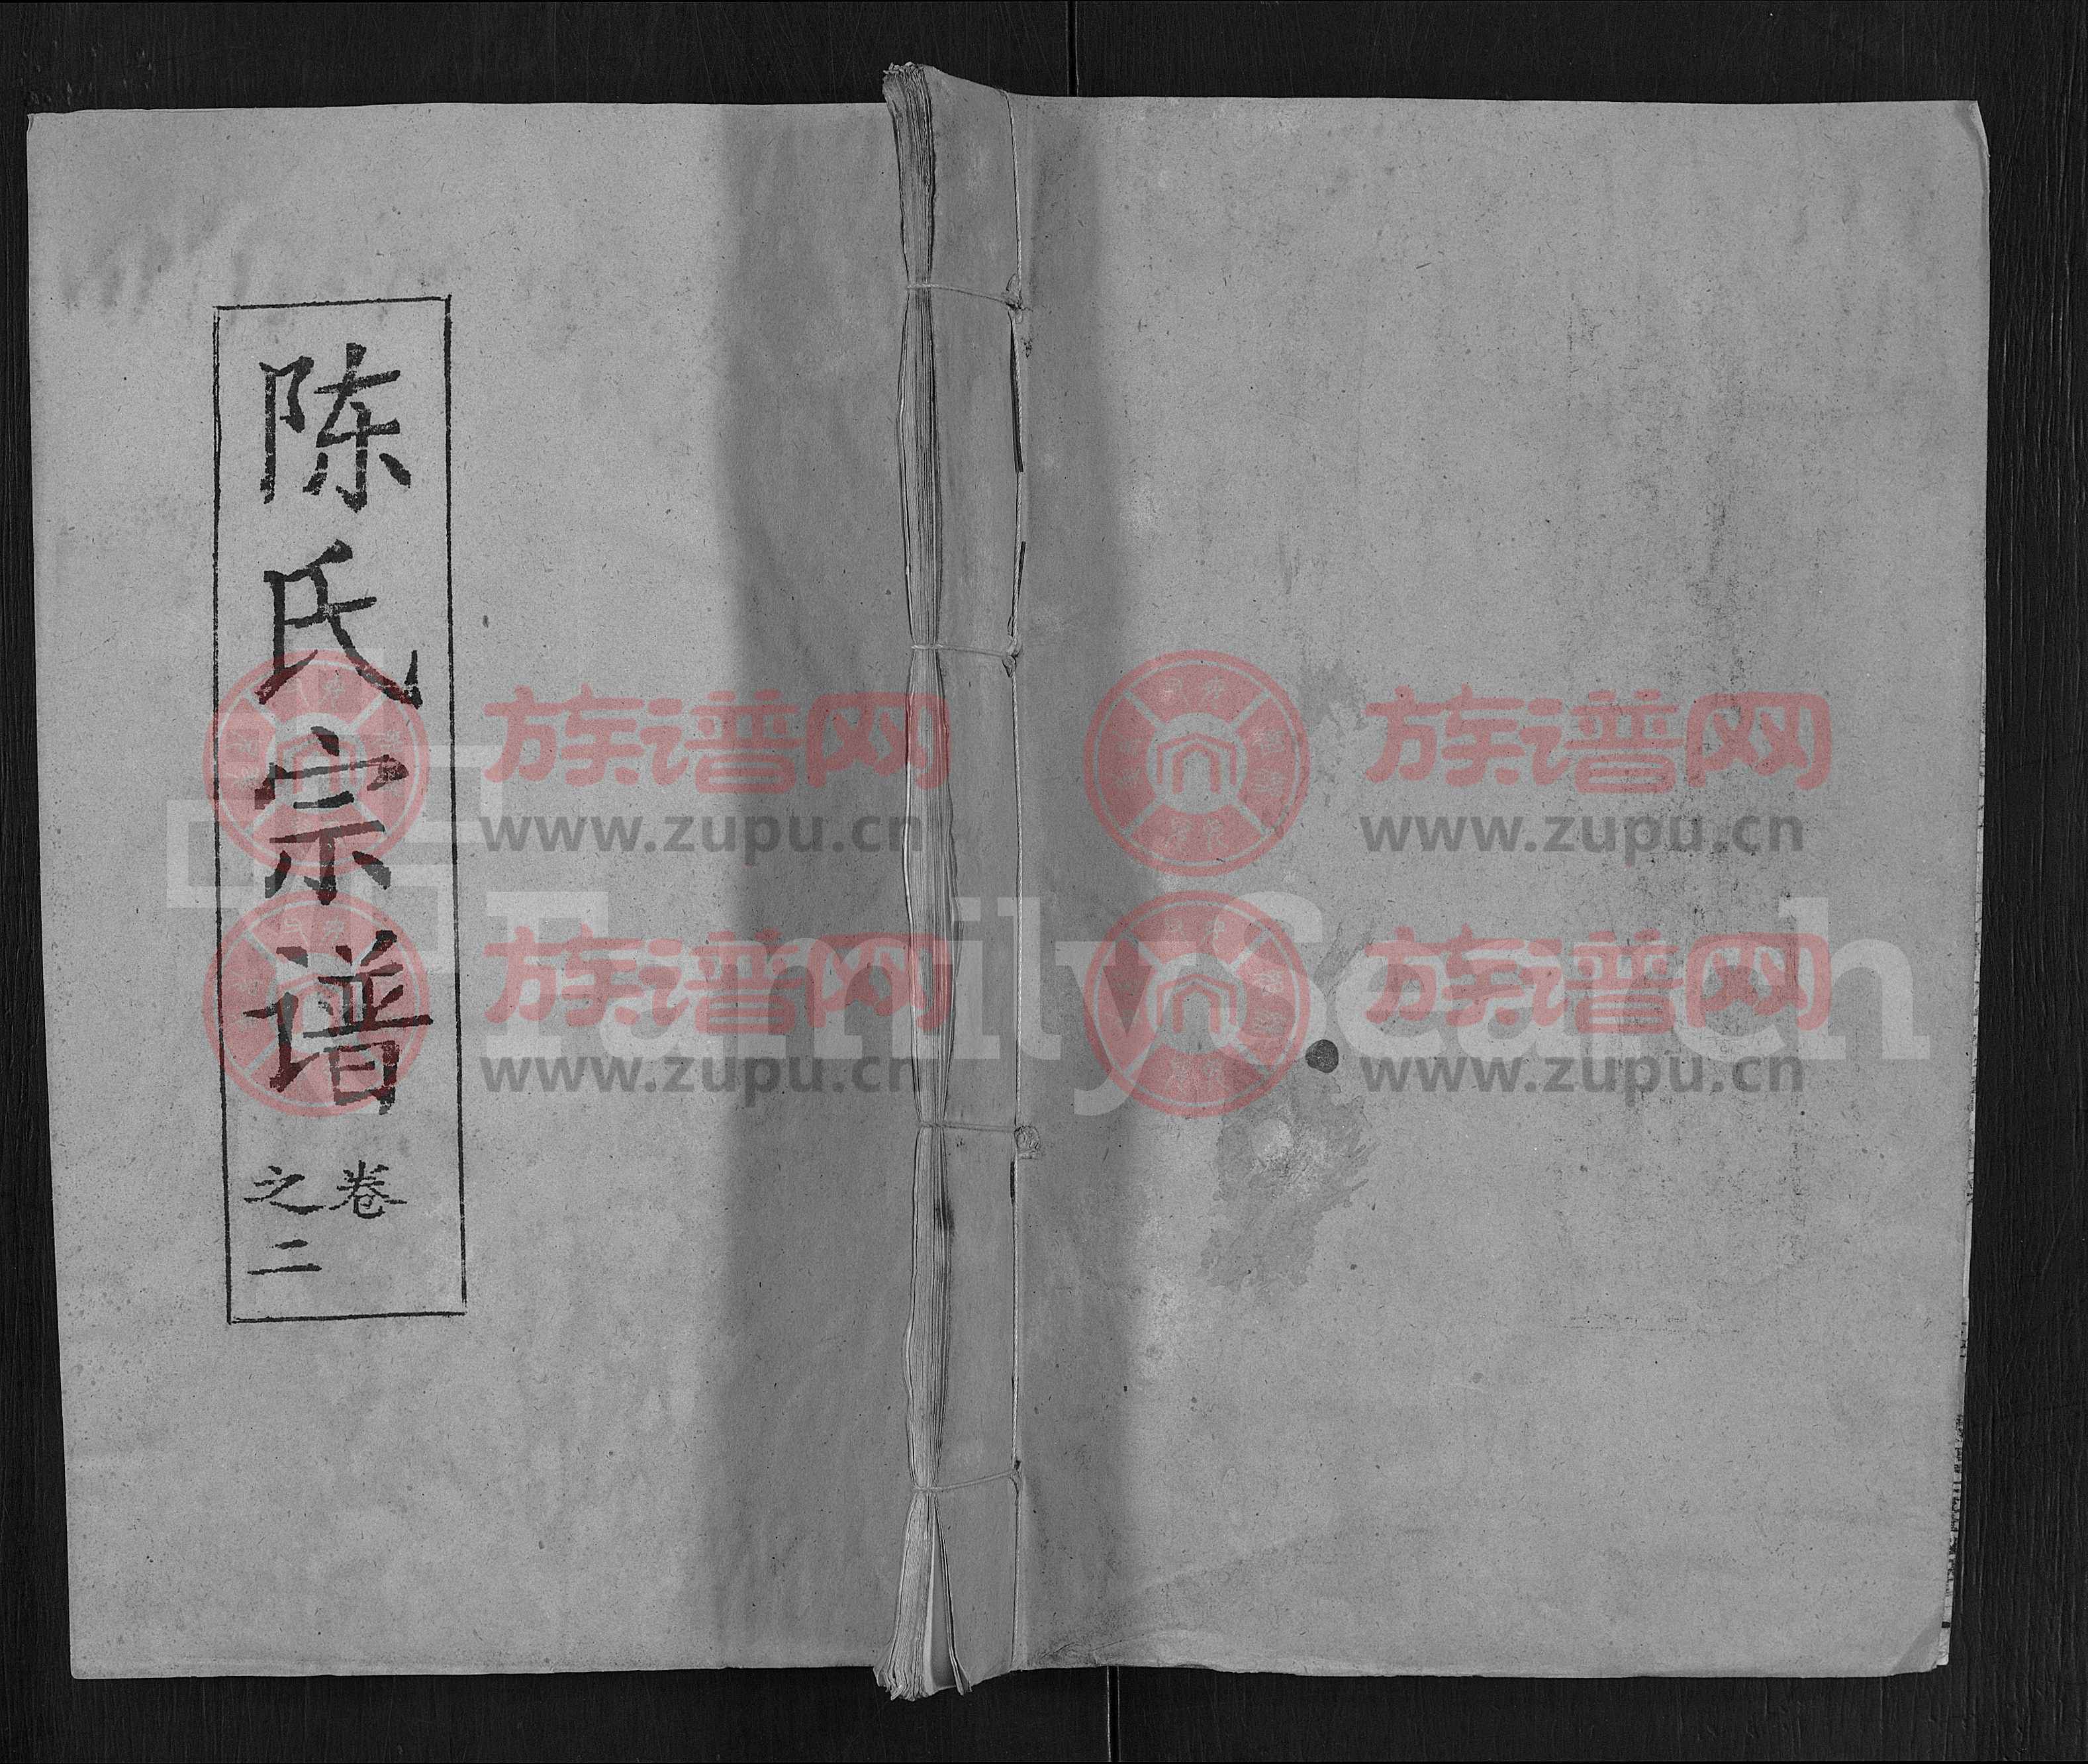 陈氏宗谱
卷
之二
族谱网
www.zupu.cn
族谱网
www.zupu.cn
FamilySearch
族谱网
www.zupu.cn
族谱网
www.zupu.cn